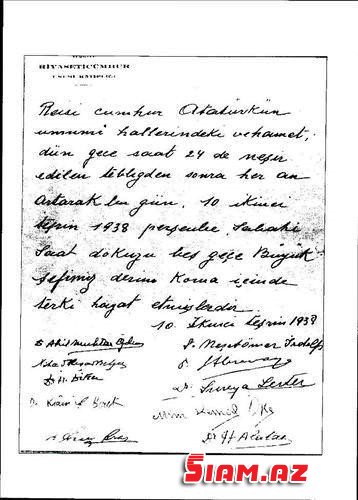 RİYASETİCÜMHUR
UMUMİ KÂTİPLİĞİ
Reisi cumhur Atatürkün
umumi hallerindeki vehamet,
dün gece saat 24 de neşir
edilen tebliğden sonra her an
artarak bu gün, 10 ikinci
teşrin 1938 perşenbe sabahi
Saat dokuzu beş geçe Büyük
şefimiz derin Koma içinde
terki hayat etmişlerdir
10. İkinci teşrin 1938
Dr Akil Muhtar Özden
Dr. Süreya Serter
Mim Kemal Öke
SIAM.AZ